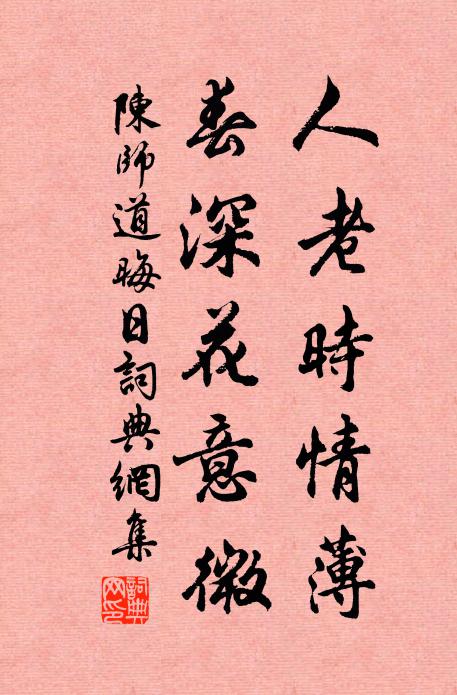 人老時情薄
春深花意微
陳師道晦日詞典網集
詞典网印